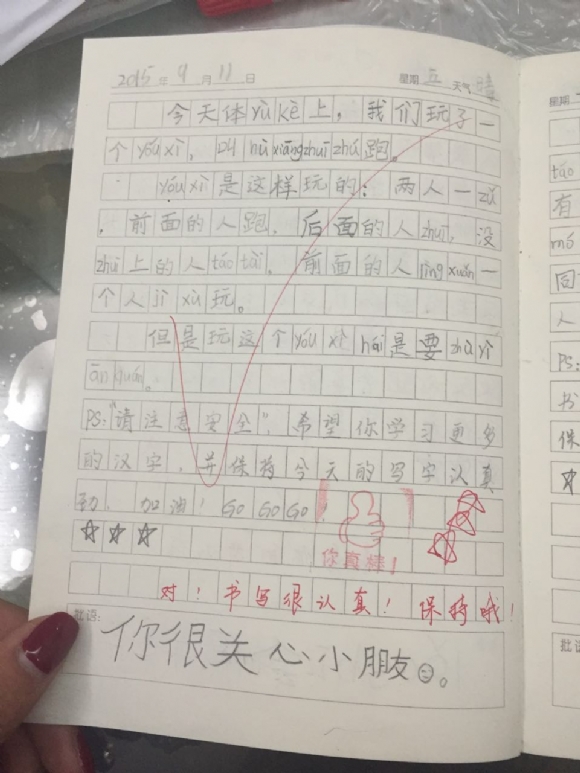 2015年9月11日 星期五 天气晴
今天体yù kè上，我们玩了一
个yóu xì，叫hù xiāng zhuī zhú跑。
yóu xì是这样玩的：两人一zǔ
，前面的人跑，后面的人zhuī，没
zhuī上的人táo tài，前面的人lìng xuǎn一
个人jì xù玩。
但是玩这个yóu xì hái是要zhù yì
ān quán。
PS:"请注意安全"，希望你学习更多
的汉字，并保持今天的写字认真
劲，加油！GO GO GO！
☆☆☆
你真棒！
对！书写很认真！保持哦！
批语：
你很关心小朋友☺。
星期
táo
有
mó
回
人
PS:
书
保
☆
批语